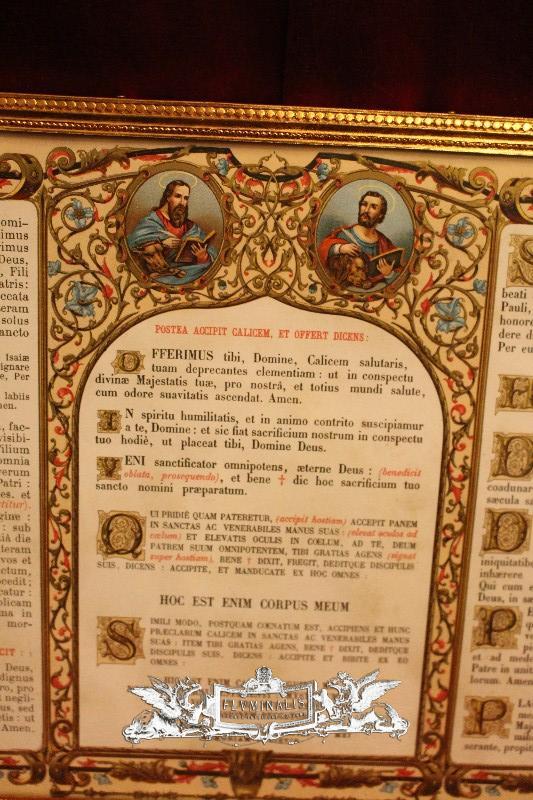 omi-
rimus
rimus
Deus,
, Fili
atris:
ccata
eram
solus
ancto
tsaiæ
, Per
labiis
men.
, fac-
visibi-
filium
omnia
verum
Patri :
es. et
ctitur).
gine :
: sub
tiâ die
teram
vos et
ctum,
ocedit :
catur :
olicam
ma in
mor-
CIT :
Deus,
dignus
ro, pro
i negli-
us, sed
etis : ut
Amen.
POSTEA ACCIPIT CALICEM, ET OFFERT DICENS:
OFFERIMUS tibi, Domine, Calicem salutaris,
tuam deprecantes clementiam : ut in conspectu
divinæ Majestatis tuæ, pro nostrâ, et totius mundi salute,
cum odore suavitatis ascendat. Amen.
IN spiritu humilitatis, et in animo contrito suscipiamur
a te, Domine : et sic fiat sacrificium nostrum in conspectu
tuo hodiè, ut placeat tibi, Domine Deus.
VENI sanctificator omnipotens, æterne Deus : (benedicit
oblata, prosequendo), et bene † dic hoc sacrificium tuo
sancto nomini præparatum.
QUI PRIDIÈ QUAM PATERETUR, (accipit hostiam) ACCEPIT PANEM
IN SANCTAS AC VENERABILES MANUS SUAS : (elevat oculos ad
cœlum) ET ELEVATIS OCULIS IN CŒLUM, AD TE, DEUM
PATREM SUUM OMNIPOTENTEM, TIBI GRATIAS AGENS (signat
super hostiam), BENE † DIXIT, FREGIT, DEDITQUE DISCIPULIS
SUIS, DICENS : ACCIPITE, ET MANDUCATE EX HOC OMNES :
HOC EST ENIM CORPUS MEUM
SIMILI MODO, POSTQUAM CŒNATUM EST, ACCIPIENS ET HUNC
PRÆCLARUM CALICEM IN SANCTAS AC VENERABILES MANUS
SUAS : ITEM TIBI GRATIAS AGENS, BENE † DIXIT, DEDITQUE
DISCIPULIS SUIS, DICENS : ACCIPITE ET BIBITE EX EO
OMNES :
HIC EST ENIM
FLUMINALIS
S
beati
Pauli,
honore
dere d
Per eu
H
D
coadunar
sæcula s
D
iniquitatib
inhærere
Qui cum e
Deus, in sa
P
et ad mede
Patre in unit
lorum. Amen
PLA
me
Maj
mi
serante, propit